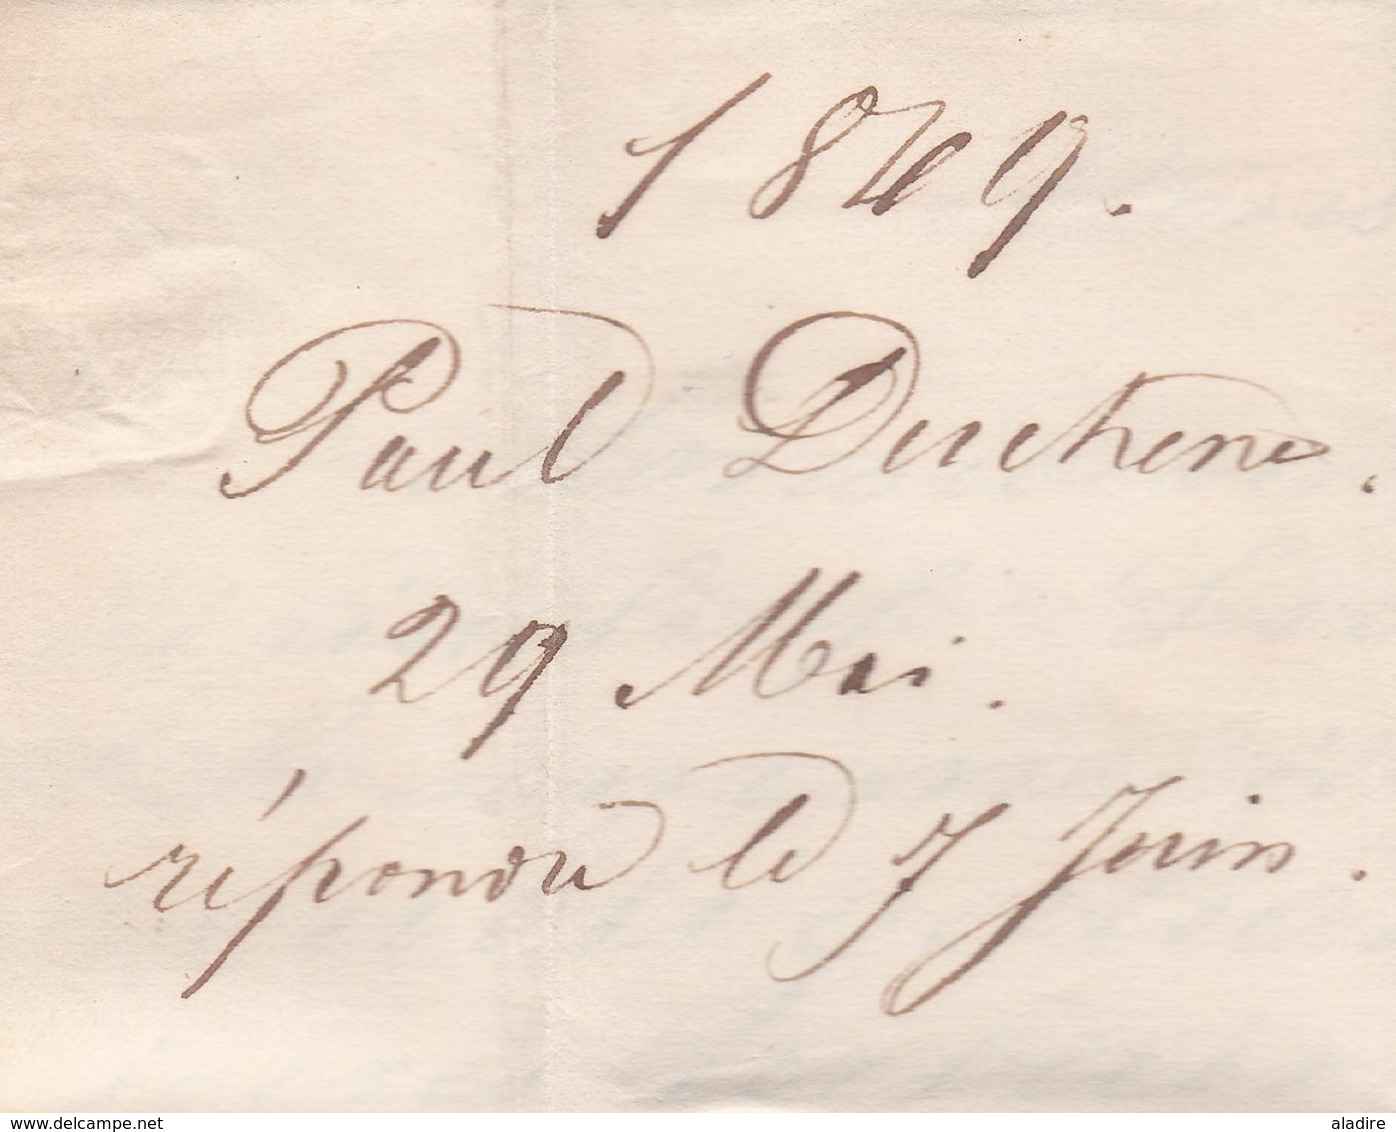 1849.
Paul Duchene.
29 Mai.
répondu le 7 Juin.
delcampe.net
aladire